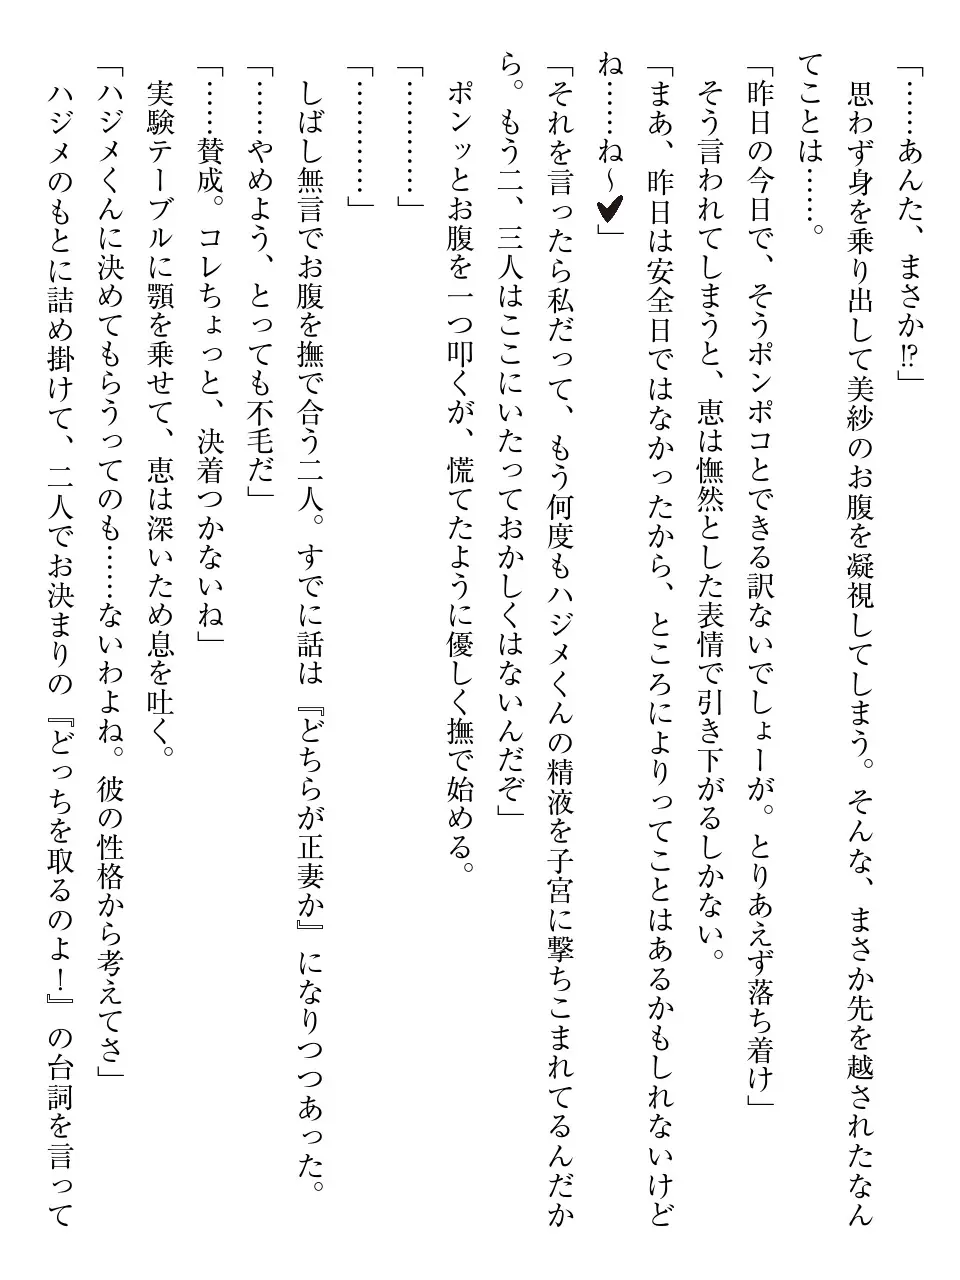 「……あんた、まさか⁉」
　思わず身を乗り出して美紗のお腹を凝視してしまう。そんな、まさか先を越されたなん
てことは……。
「昨日の今日で、そうポンポコとできる訳ないでしょーが。とりあえず落ち着け」
　そう言われてしまうと、恵は憮然とした表情で引き下がるしかない。
「まあ、昨日は安全日ではなかったから、ところによりってことはあるかもしれないけど
ね……ね～♥」
「それを言ったら私だって、もう何度もハジメくんの精液を子宮に撃ちこまれてるんだか
ら。もう二、三人はここにいたっておかしくはないんだぞ」
　ポンッとお腹を一つ叩くが、慌てたように優しく撫で始める。
「…………」
「…………」
　しばし無言でお腹を撫で合う二人。すでに話は『どちらが正妻か』になりつつあった。
「……やめよう、とっても不毛だ」
「……賛成。コレちょっと、決着つかないね」
　実験テーブルに顎を乗せて、恵は深いため息を吐く。
「ハジメくんに決めてもらうってのも……ないわよね。彼の性格から考えてさ」
　ハジメのもとに詰め掛けて、二人でお決まりの『どっちを取るのよ！』の台詞を言って